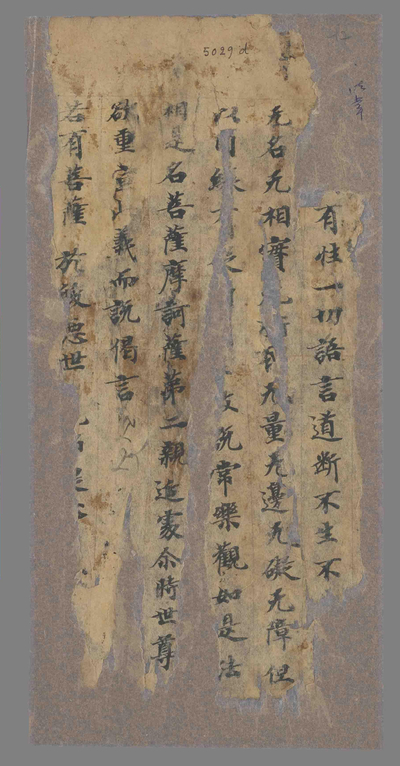 5029 d
有性一切語言道断不生不
无名无相實无所有无量无邊无礙无障但
以因緣有從故說常樂觀如是法
相是名菩薩摩訶薩第二親近處尒時世尊
欲重宣此義而說偈言
若有菩薩於後惡世